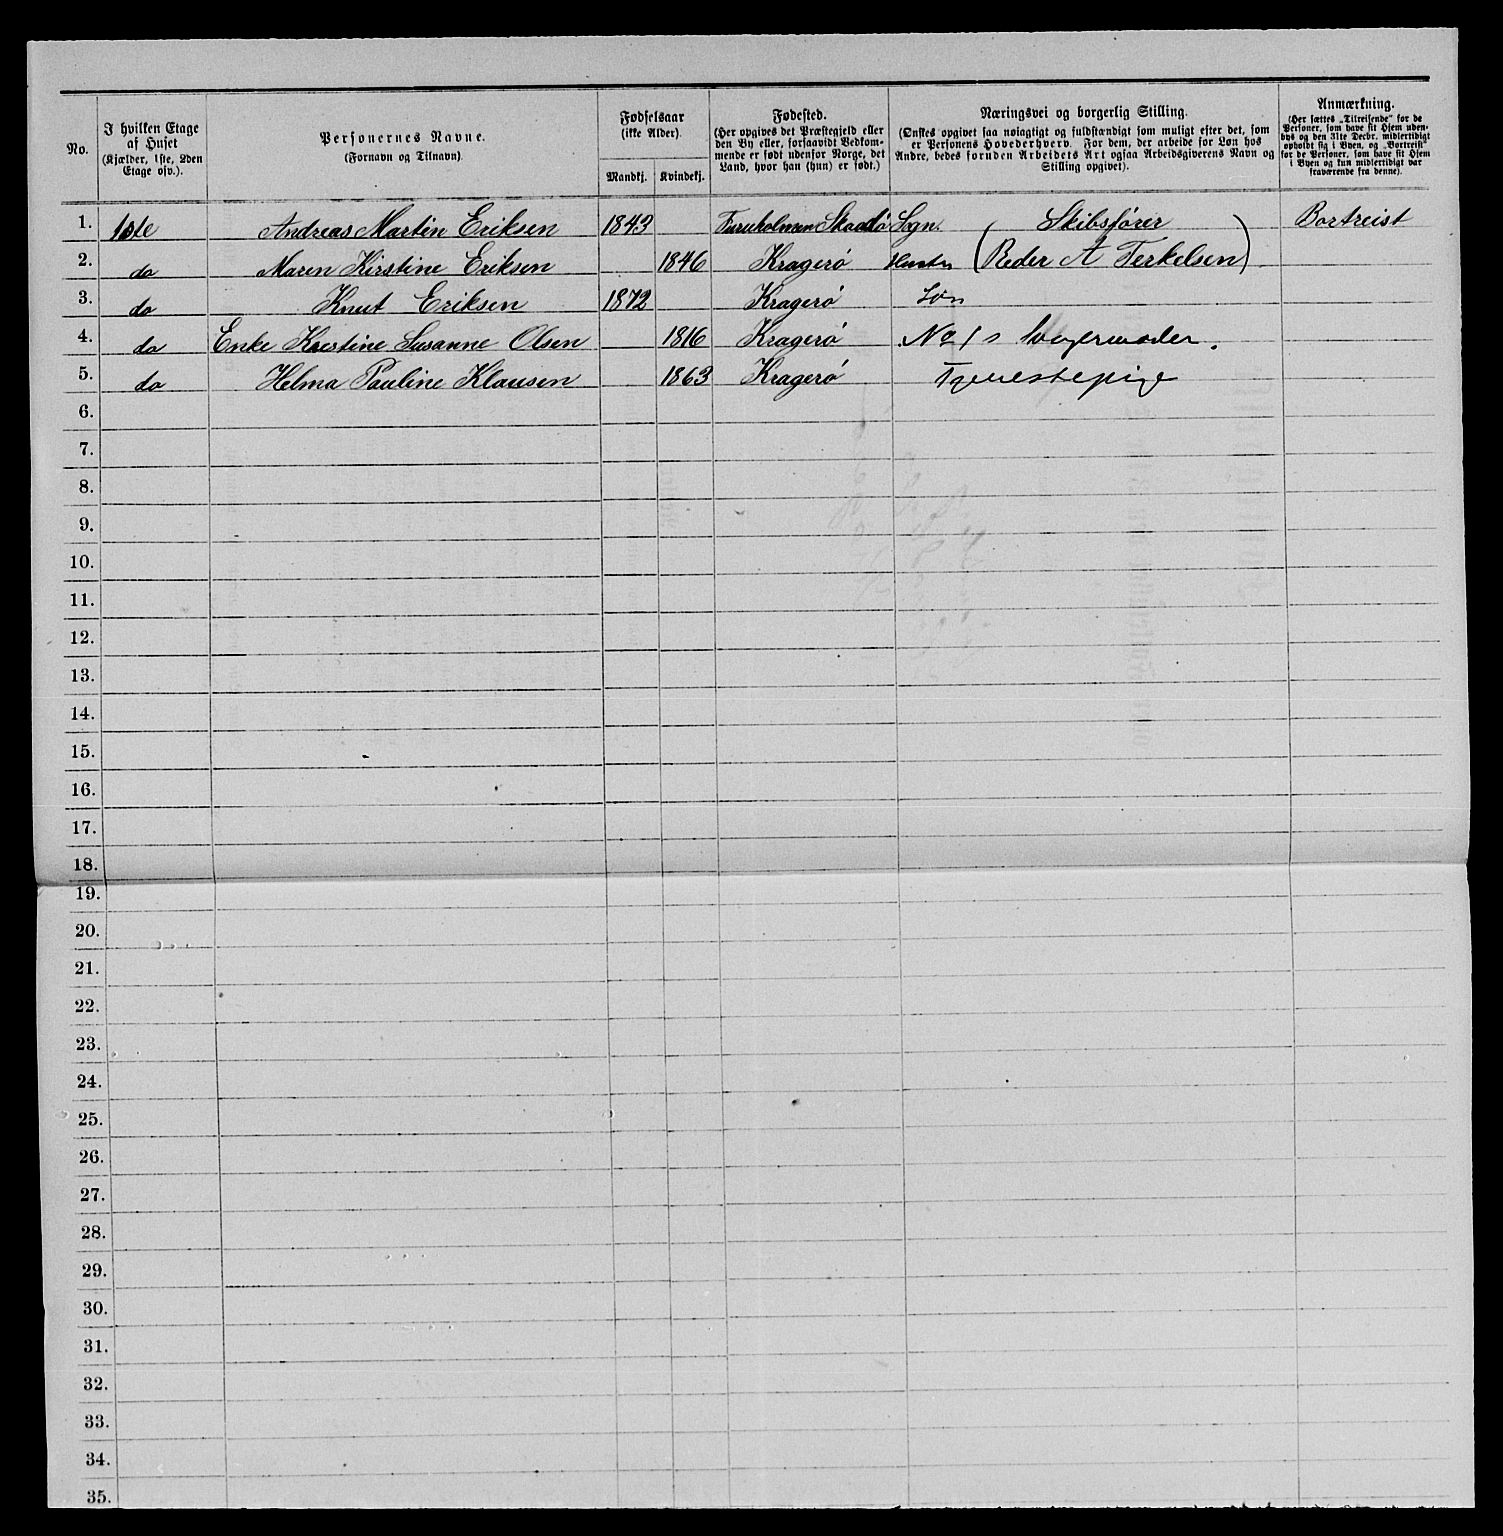 No.
I hvilken Etage
af Huset
(Kjælder, 1ste, 2den
Etage osv.).
Personernes Navne.
(Fornavn og Tilnavn).
Fødselsaar
(ikke Alder).
Mandkj. Kvindekj.
Fødested.
(Her opgives det Præstegjeld eller
den By eller, forsaavidt Vedkom-
mende er født udenfor Norge, det
Land, hvor han (hun) er født.)
Næringsvei og borgerlig Stilling.
(Ønskes opgivet saa nøiagtigt og fuldstændigt som muligt efter det, som
er Personens Hovederhverv. For dem, der arbeide for Løn hos
Andre, bedes foruden Arbeidets Art ogsaa Arbeidsgiverens Navn og
Stilling opgivet).
Anmærkning.
(Her sættes „Tilreisende" for de
Personer, som have sit Hjem uden-
bys og den 31te Decbr. midlertidigt
opholdt sig i Byen, og „Bortreist"
for de Personer, som have sit Hjem
i Byen og kun midlertidigt var
fraværende fra denne).
1. 1ste Andreas Martin Eriksen 1843 Furuholmen Skaatö Sogn. Skibsfører Bortreist
2. do Maren Kirstine Eriksen 1846 Kragerö Hustru (Reder A Terkelsen)
3. do Knut Eriksen 1872 Kragerö Søn
4. do Enke Kirstine Susanne Olsen 1816 Kragerö No 1 s Svigermoder.
5. do Helma Pauline Klausen 1863 Kragerö Tjenestepige
6.
7.
8.
9.
10.
11.
12.
13.
14.
15.
16.
17.
18.
19.
20.
21.
22.
23.
24.
25.
26.
27.
28.
29.
30.
31.
32.
33.
34.
35.